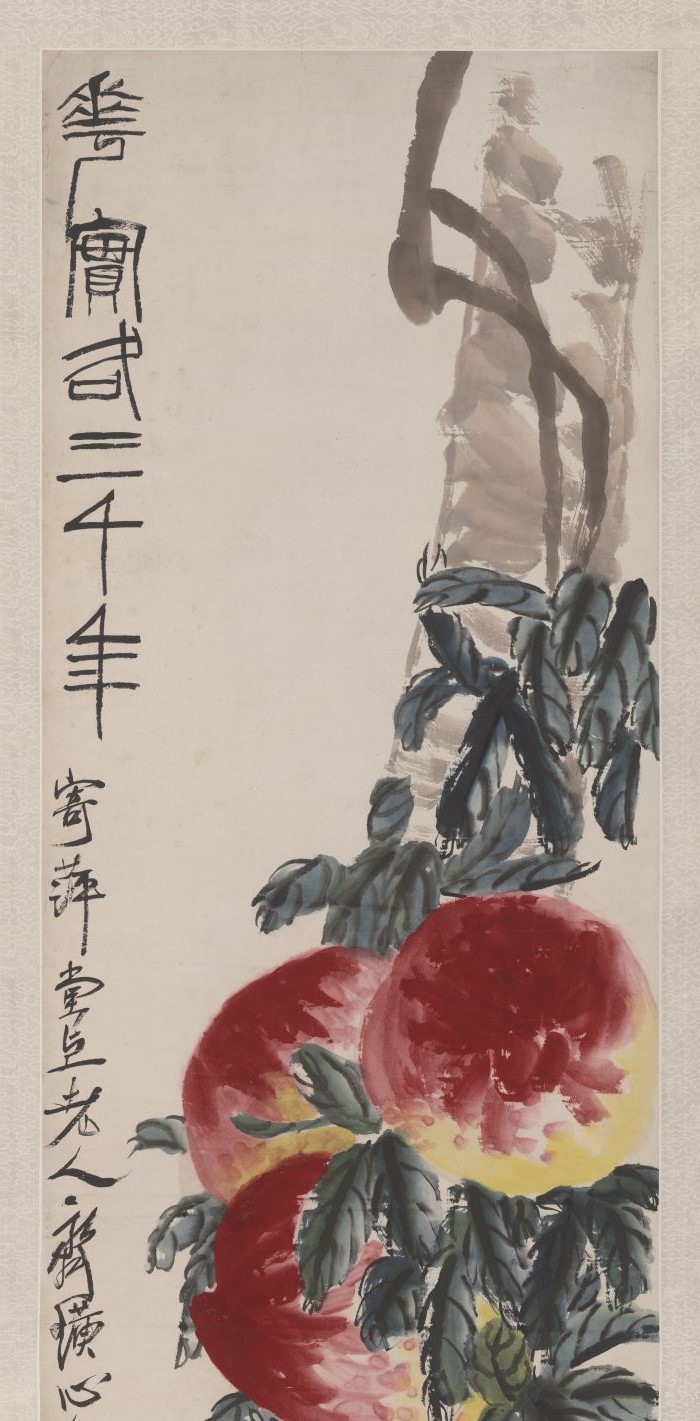 華實各三千年
寄萍堂上老人齊璜心